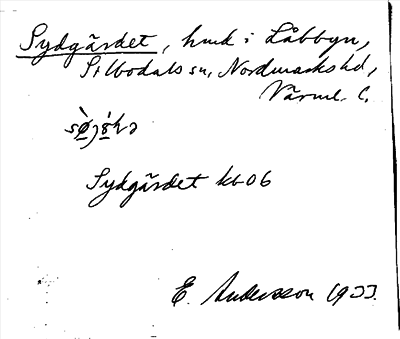 Sydgärdet, hmd i Låbbyn,
Silbodals sn, Nordmarks hd,
Värml. l.
Sydgärdet kb 06
E. Andersson 1933.